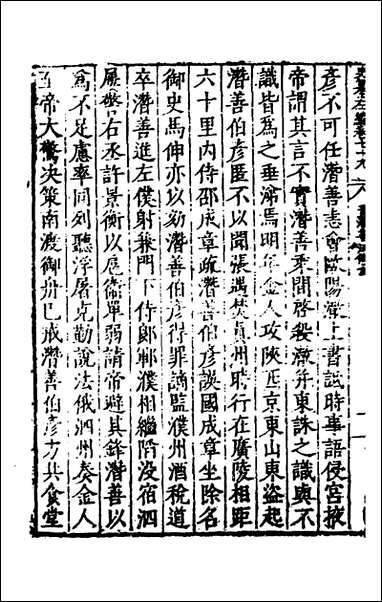 彥不可任潛善恚會歐陽澈上書詆時事語侵宮掖
帝謂其言不實潛善乘間啓殺澈并東誅之識與不
識皆爲之垂涕焉明年金人攻陝西京東山東盜起
潛善伯彥匿不以聞張遇焚眞州時行在廣陵相距
六十里内侍邵成章疏潛善伯彥誤國成章坐除名
御史馬伸亦以劾潛善伯彥得罪謫監濮州酒稅道
卒潛善進左僕射兼門下侍郎鄆濮相繼陷没宿泗
屢警右丞許景衡以扈衞單弱請帝避其鋒潛善以
爲不足慮率同列聽浮屠克勤說法俄泗州奏金人
至帝大驚決策南渡御舟已戒潛善伯彥方共食堂